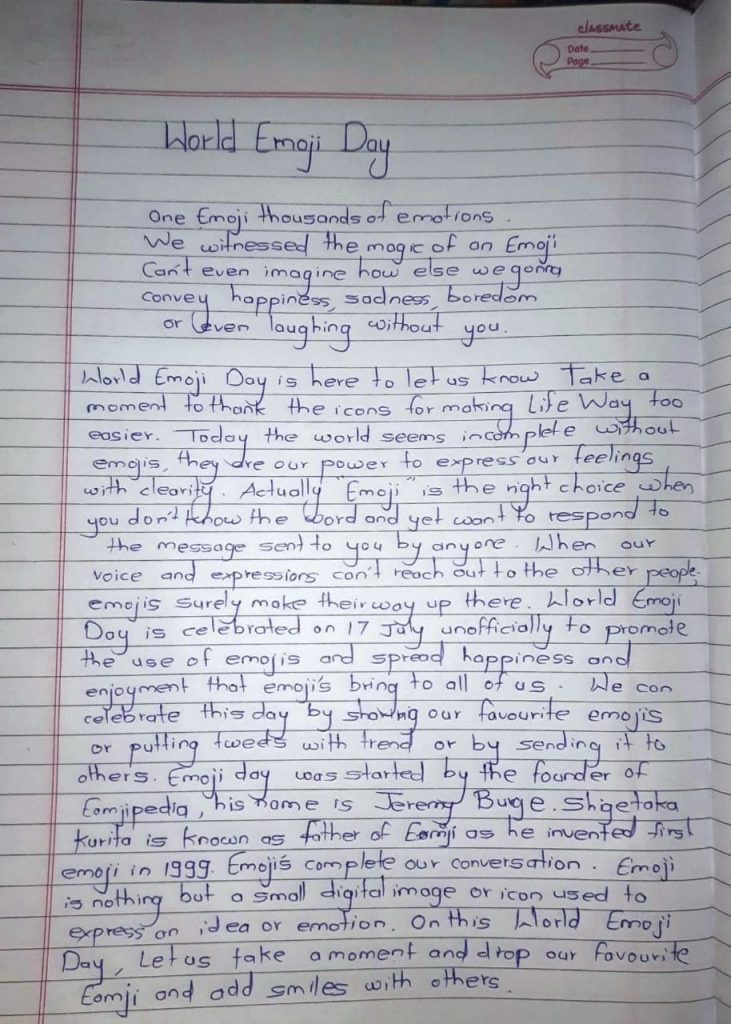 classmate
Date
Page
World Emoji Day
One Emoji thousands of emotions.
We witnessed the magic of an Emoji
Can't even imagine how else we gonna
convey happiness, sadness, boredom
or even laughing without you.
World Emoji Day is here to let us know Take a
moment to thank the icons for making Life Way too
easier. Today the world seems incomplete without
emojis, they are our power to express our feelings
with clearity. Actually "Emoji" is the right choice when
you don't know the word and yet want to respond to
the message sent to you by anyone. When our
voice and expressions can't reach out to the other people,
emojis surely make their way up there. World Emoji
Day is celebrated on 17 July unofficially to promote
the use of emojis and spread happiness and
enjoyment that emoji's bring to all of us. We can
celebrate this day by showing our favourite emojis
or putting tweets with trend or by sending it to
others. Emoji day was started by the founder of
Eomjipedia, his name is Jeremy Buge. Shigetaka
Kurita is known as father of Eomji as he invented first
emoji in 1999. Emoji's complete our conversation. Emoji
is nothing but a small digital image or icon used to
express an idea or emotion. On this World Emoji
Day, Let us take a moment and drop our favourite
Eomji and add smiles with others.